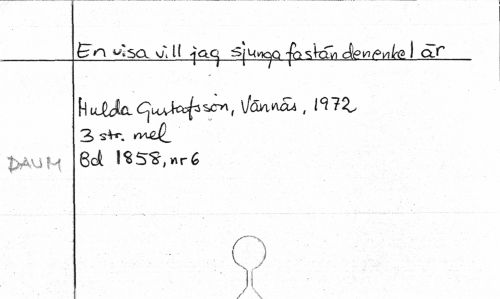 En visa vill jag sjunga fastän den enkel är
Hulda Gustafsson, Vännäs, 1972
3 str. mel
DAUM Bd 1858, nr 6